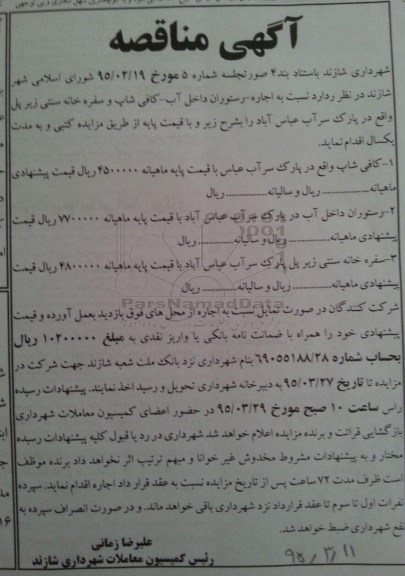 آگهی مناقصه
شهرداری شازند باستناد بند۴ صورتجلسه شماره ۵ مورخ ۹۵/۰۲/۱۹ شورای اسلامی شهر
شازند در نظر ردارد نسبت به اجاره-رستوران داخل آب-کافی شاپ و سفره خانه سنتی زیر پل
واقع در پارک سرآب عباس آباد را بشرح زیر و با قیمت پایه از طریق مزایده کتبی و به مدت
یکسال اقدام نماید.
۱-کافی شاپ واقع در پارک سرآب عباس با قیمت پایه ماهیانه ۴۵۰۰۰۰۰ ریال قیمت پیشنهادی
ماهیانه................... ریال و سالیانه................ریال
۲-رستوران داخل آب در پارک سرآب عباس آباد با قیمت پایه ماهیانه ۷۷۰۰۰۰۰ ریال قیمت
پیشنهادی ماهیانه................ریال و سالیانه..............ریال
۳-سفره خانه سنتی زیر پل پارک سرآب عباس آباد با قیمت پایه ماهیانه ۴۸۰۰۰۰۰ ریال
پیشنهادی ماهیانه................ریال و سالیانه.............. ریال
شرکت کنندگان در صورت تمایل نسبت به اجاره از محل های فوق بازدید بعمل آورده و قیمت
پیشنهادی خود را همراه با ضمانت نامه بانکی یا واریز نقدی به مبلغ ۱۰۲۰۰۰۰۰ ریال
بحساب شماره ۶۹۰۵۵۱۸۸/۲۸ بنام شهرداری نزد بانک ملت شعبه شازند جهت شرکت در
مزایده تا تاریخ ۹۵/۰۳/۲۷ به دبیرخانه شهرداری تحویل و رسید اخذ نمایند. پیشنهادات رسیده
راس ساعت ۱۰ صبح مورخ ۹۵/۰۳/۲۹ در حضور اعضای کمیسیون معاملات شهرداری
بازگشایی قرائت و برنده مزایده اعلام خواهد شد شهرداری در رد یا قبول کلیه پیشنهادات رسیده
مختار و به پیشنهادات مشروط مخدوش غیر خوانا و مبهم ترتیب اثر نخواهد داد برنده موظف
است ظرف مدت ۷۲ ساعت پس از تاریخ مزایده نسبت به عقد قرار داد اجاره اقدام نماید. سپرده
نفرات اول تا سوم تا عقد قرارداد نزد شهرداری باقی خواهد ماند. و در صورت انصراف سپرده به
نفع شهرداری ضبط خواهد شد.
علیرضا زمانی
رئیس کمیسیون معاملات شهرداری شازند
۹۵/۳/۱۱
ParsNamadData